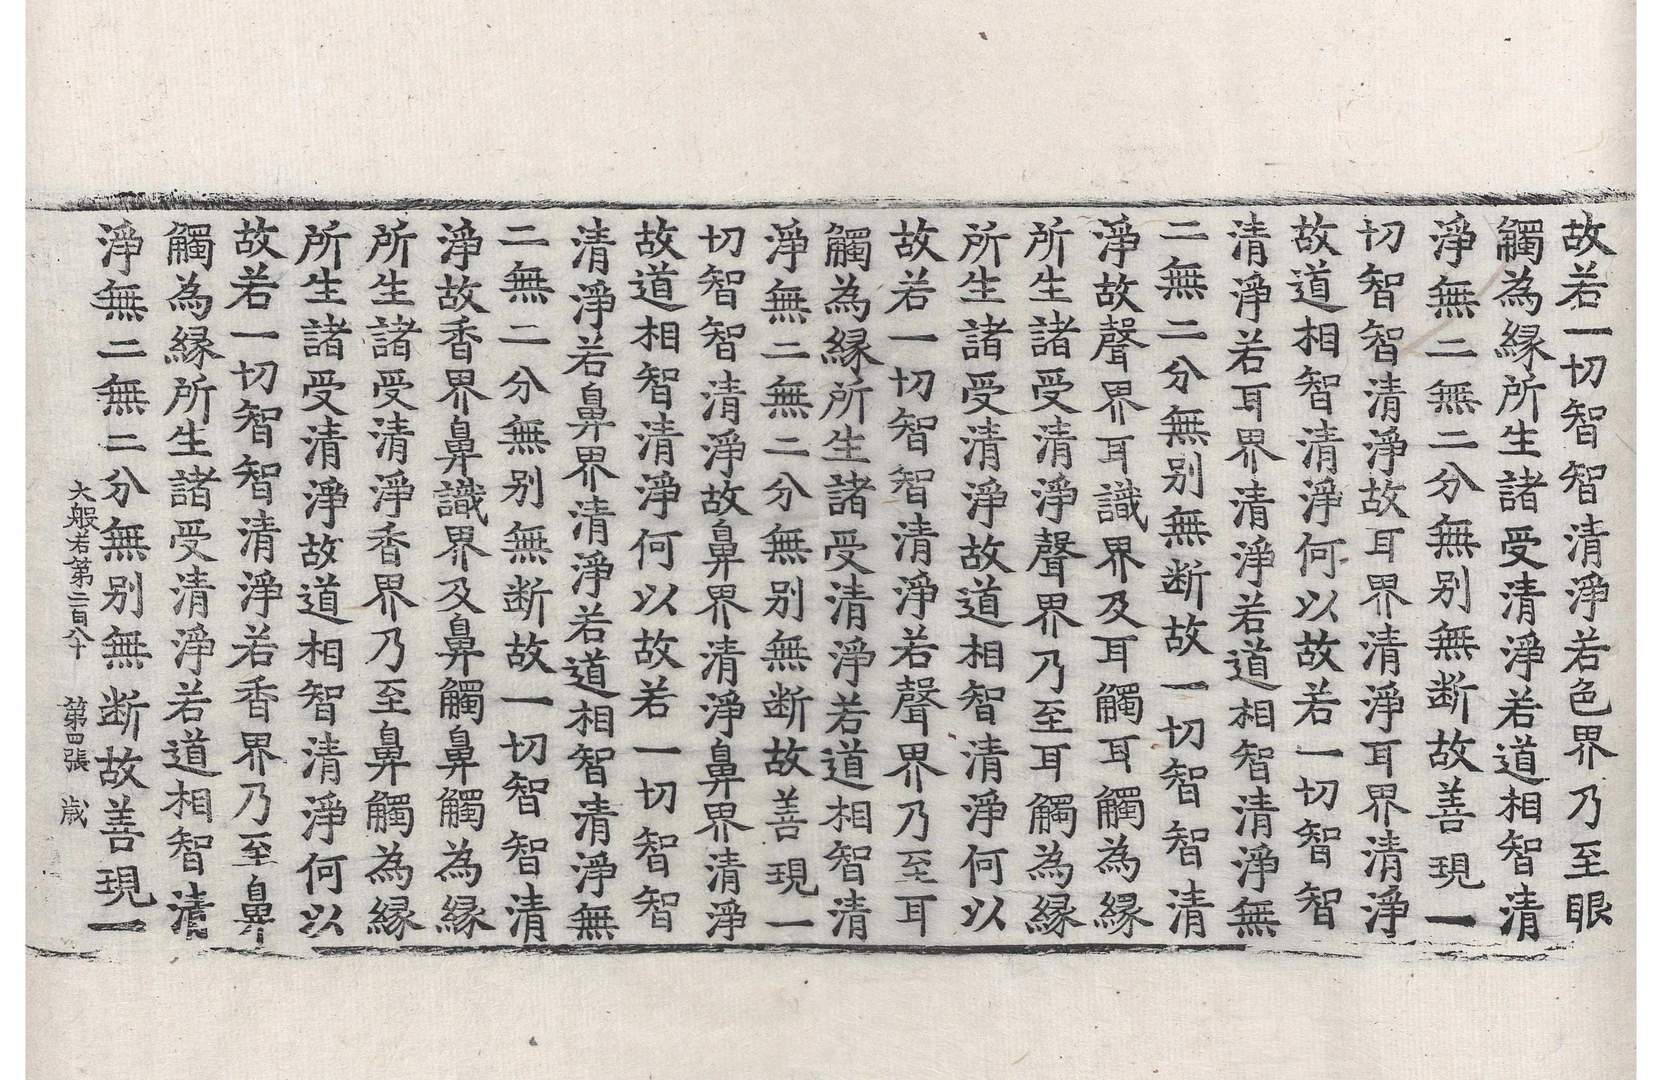 故若一切智智清淨若色界乃至眼
觸為縁所生諸受清淨若道相智清
淨無二無二分無别無断故善現一
切智智清淨故耳界清淨耳界清淨
故道相智清淨何以故若一切智智
清淨若耳界清淨若道相智清淨無
二無二分無别無断故一切智智清
淨故聲界耳識界及耳觸耳觸為縁
所生諸受清淨聲界乃至耳觸為縁
所生諸受清淨故道相智清淨何以
故若一切智智清淨若聲界乃至耳
觸為縁所生諸受清淨若道相智清
淨無二無二分無别無断故善現一
切智智清淨故鼻界清淨鼻界清淨
故道相智清淨何以故若一切智智
清淨若鼻界清淨若道相智清淨無
二無二分無别無断故一切智智清
淨故香界鼻識界及鼻觸鼻觸為縁
所生諸受清淨香界乃至鼻觸為縁
所生諸受清淨故道相智清淨何以
故若一切智智清淨若香界乃至鼻
觸為縁所生諸受清淨若道相智清
淨無二無二分無别無断故善現一
大般若第二百八十 第四張 歲